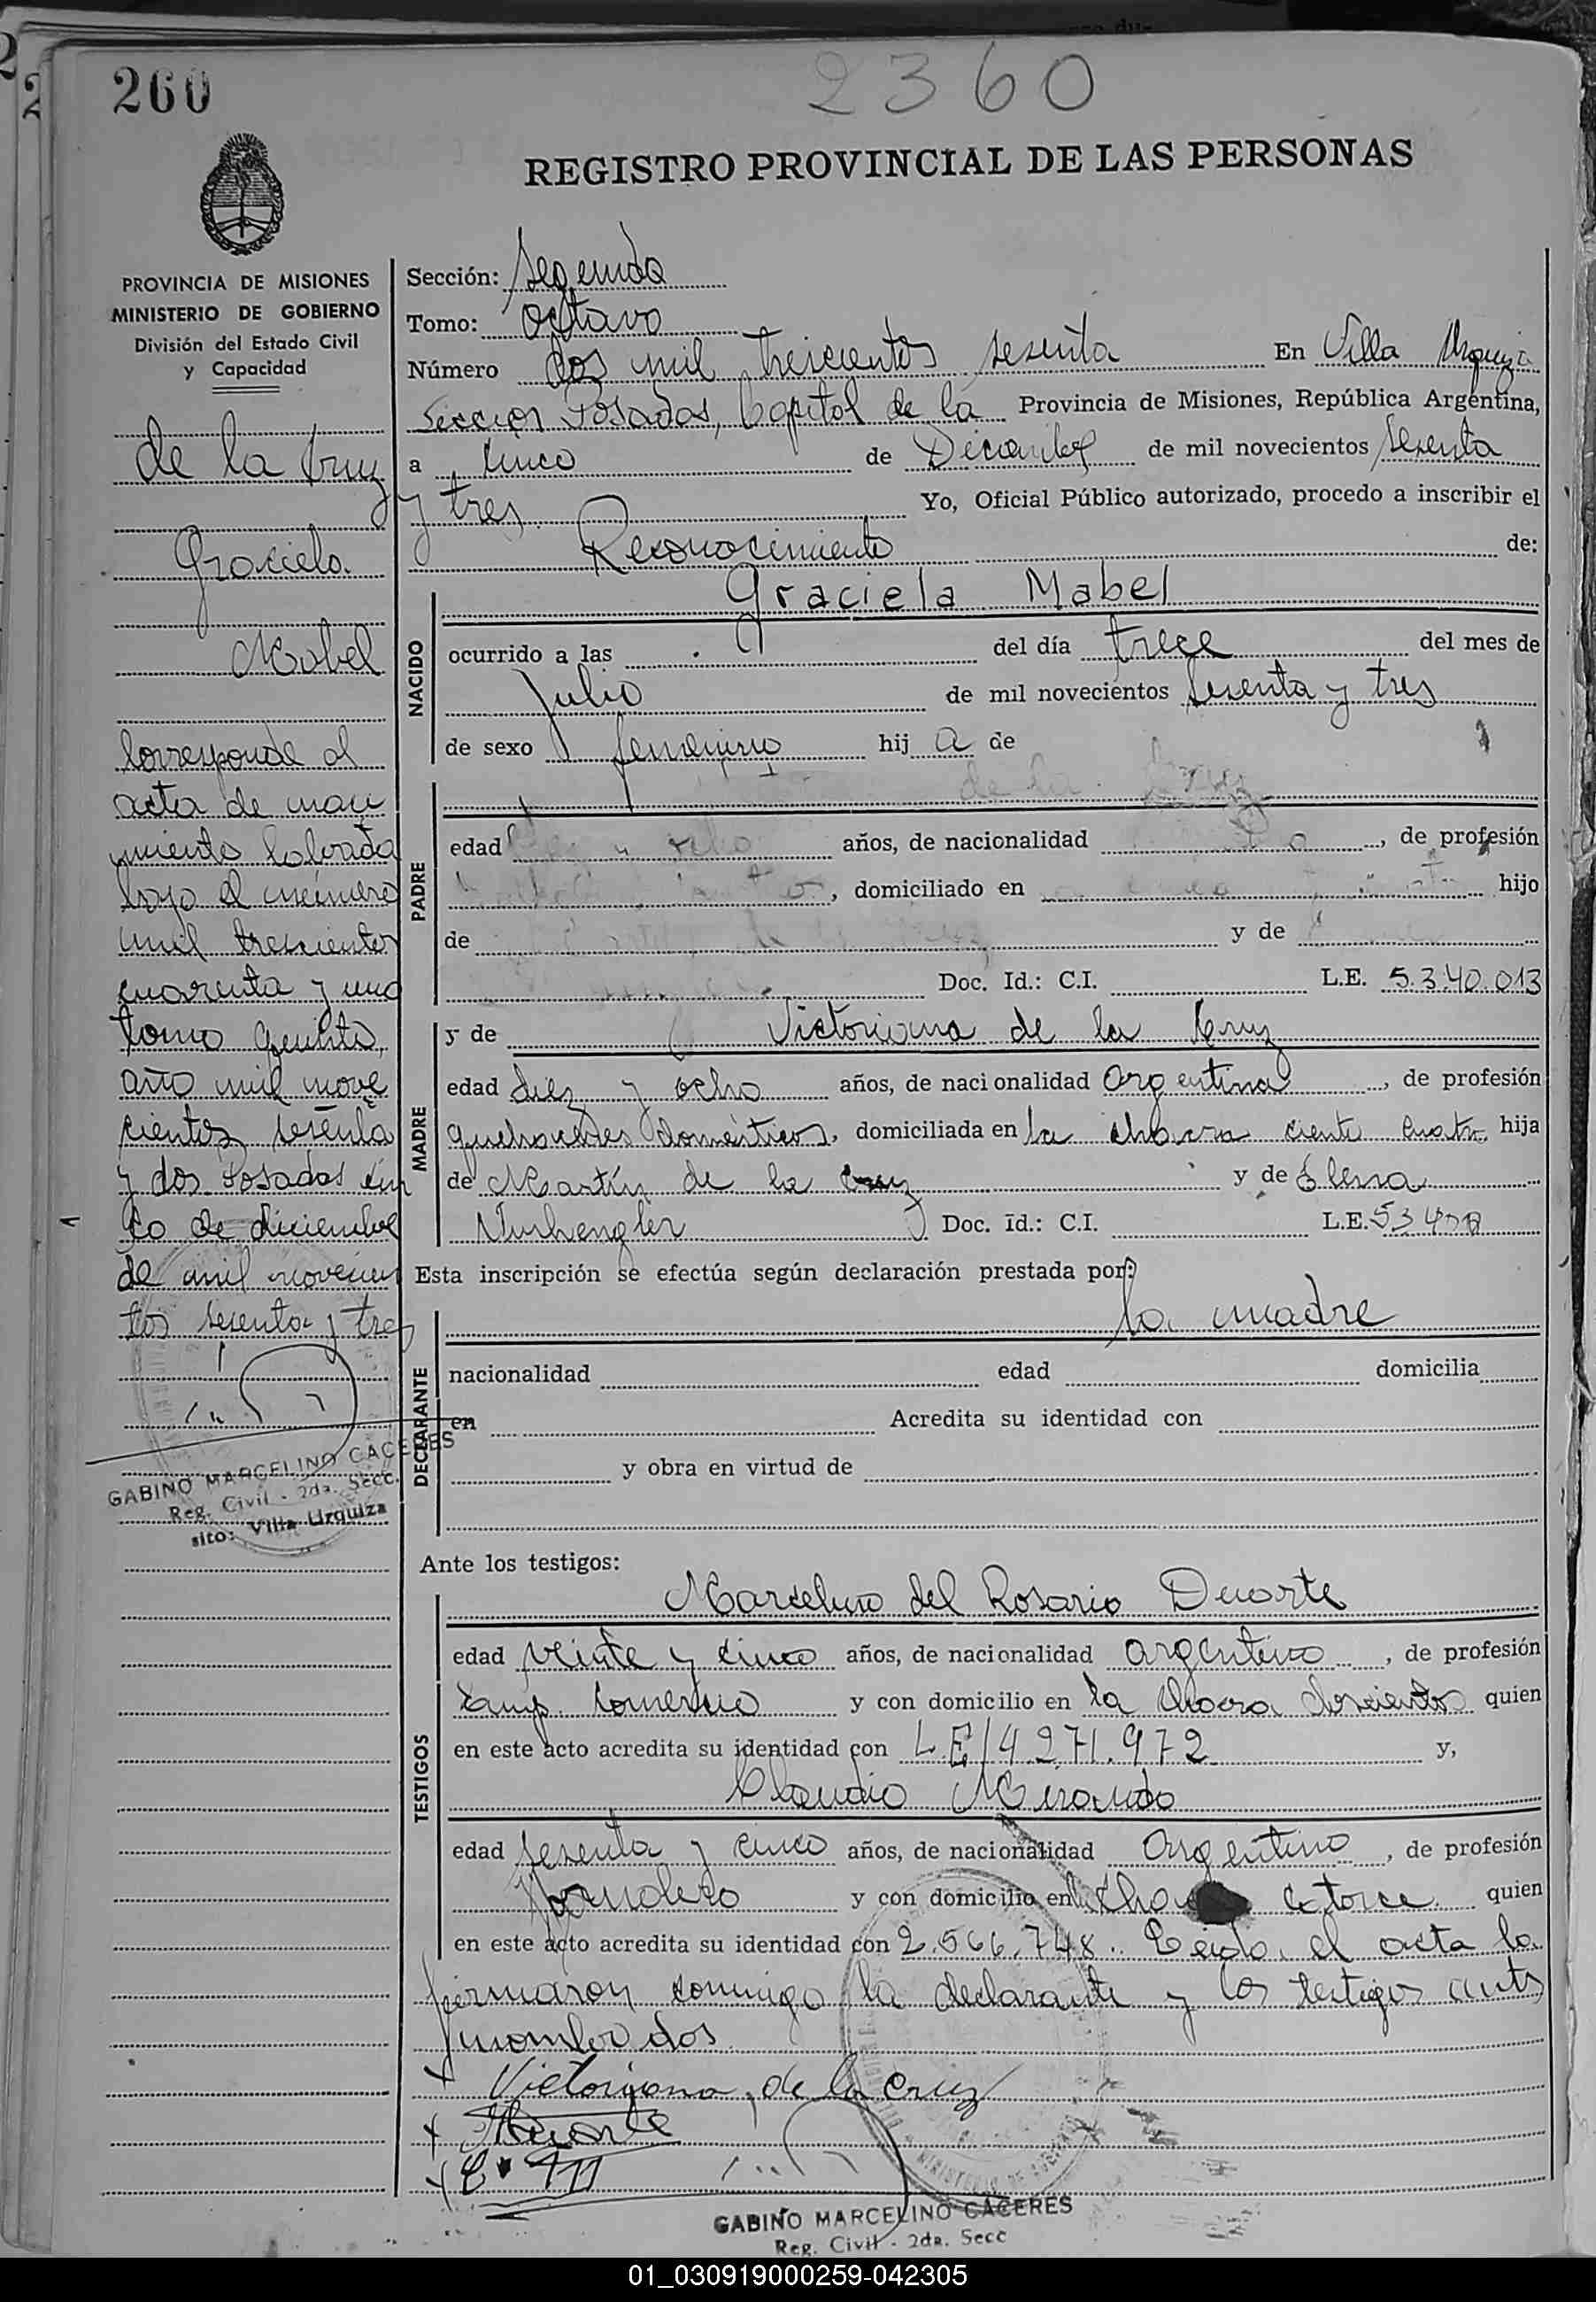 260
2360
REGISTRO PROVINCIAL DE LAS PERSONAS
PROVINCIA DE MISIONES
MINISTERIO DE GOBIERNO
División del Estado Civil
y Capacidad
de la Cruz
Graciela
Mabel
Corresponde al
acta de naci
miento labrada
bajo el número
mil trescientos
cuarenta y uno
tomo quinto,
año mil nove
cientos sesenta
y dos Posadas cin
co de diciembre
de mil novecien
tos sesenta y tres
GABINO MARCELINO CACERES
Reg. Civil - 2da. Secc.
sito: Villa Urquiza
Sección: Segunda
Tomo: Octavo
Número dos mil trescientos sesenta En Villa Urquiza
Sección Posadas, Capital de la Provincia de Misiones, República Argentina,
a cinco de Diciembre de mil novecientos sesenta
y tres Yo, Oficial Público autorizado, procedo a inscribir el
Reconocimiento de:
Graciela Mabel
NACIDO
ocurrido a las del día trece del mes de
Julio de mil novecientos sesenta y tres
de sexo femenino hij a de
PADRE
de la Cruz
edad y ocho años, de nacionalidad , de profesión
, domiciliado en hijo
de y de
Doc. Id.: C.I. L.E. 5.340.013
MADRE
y de Victoriana de la Cruz
edad diez y ocho años, de nacionalidad Argentina , de profesión
quehaceres domésticos, domiciliada en la chacra ciento cuatro hija
de Martín de la Cruz y de Elena
Doc. Id.: C.I. L.E.
Esta inscripción se efectúa según declaración prestada por:
la madre
DECLARANTE
nacionalidad edad domicilia
en Acredita su identidad con
y obra en virtud de
Ante los testigos:
TESTIGOS
Marcelino del Rosario Duarte
edad veinte y cinco años, de nacionalidad argentino , de profesión
emp. comercio y con domicilio en la chacra doscientos quien
en este acto acredita su identidad con L.E. 4.271.972 y,
Claudio Miranda
edad sesenta y cinco años, de nacionalidad Argentino , de profesión
Jornalero y con domicilio en catorce quien
en este acto acredita su identidad con 2.566.748. Leida el acta la
firmaron conmigo la declarante y los testigos ants
nombrados
Victoriana, de la Cruz
GABINO MARCELINO CACERES
Reg. Civil - 2da. Secc
01_030919000259-042305